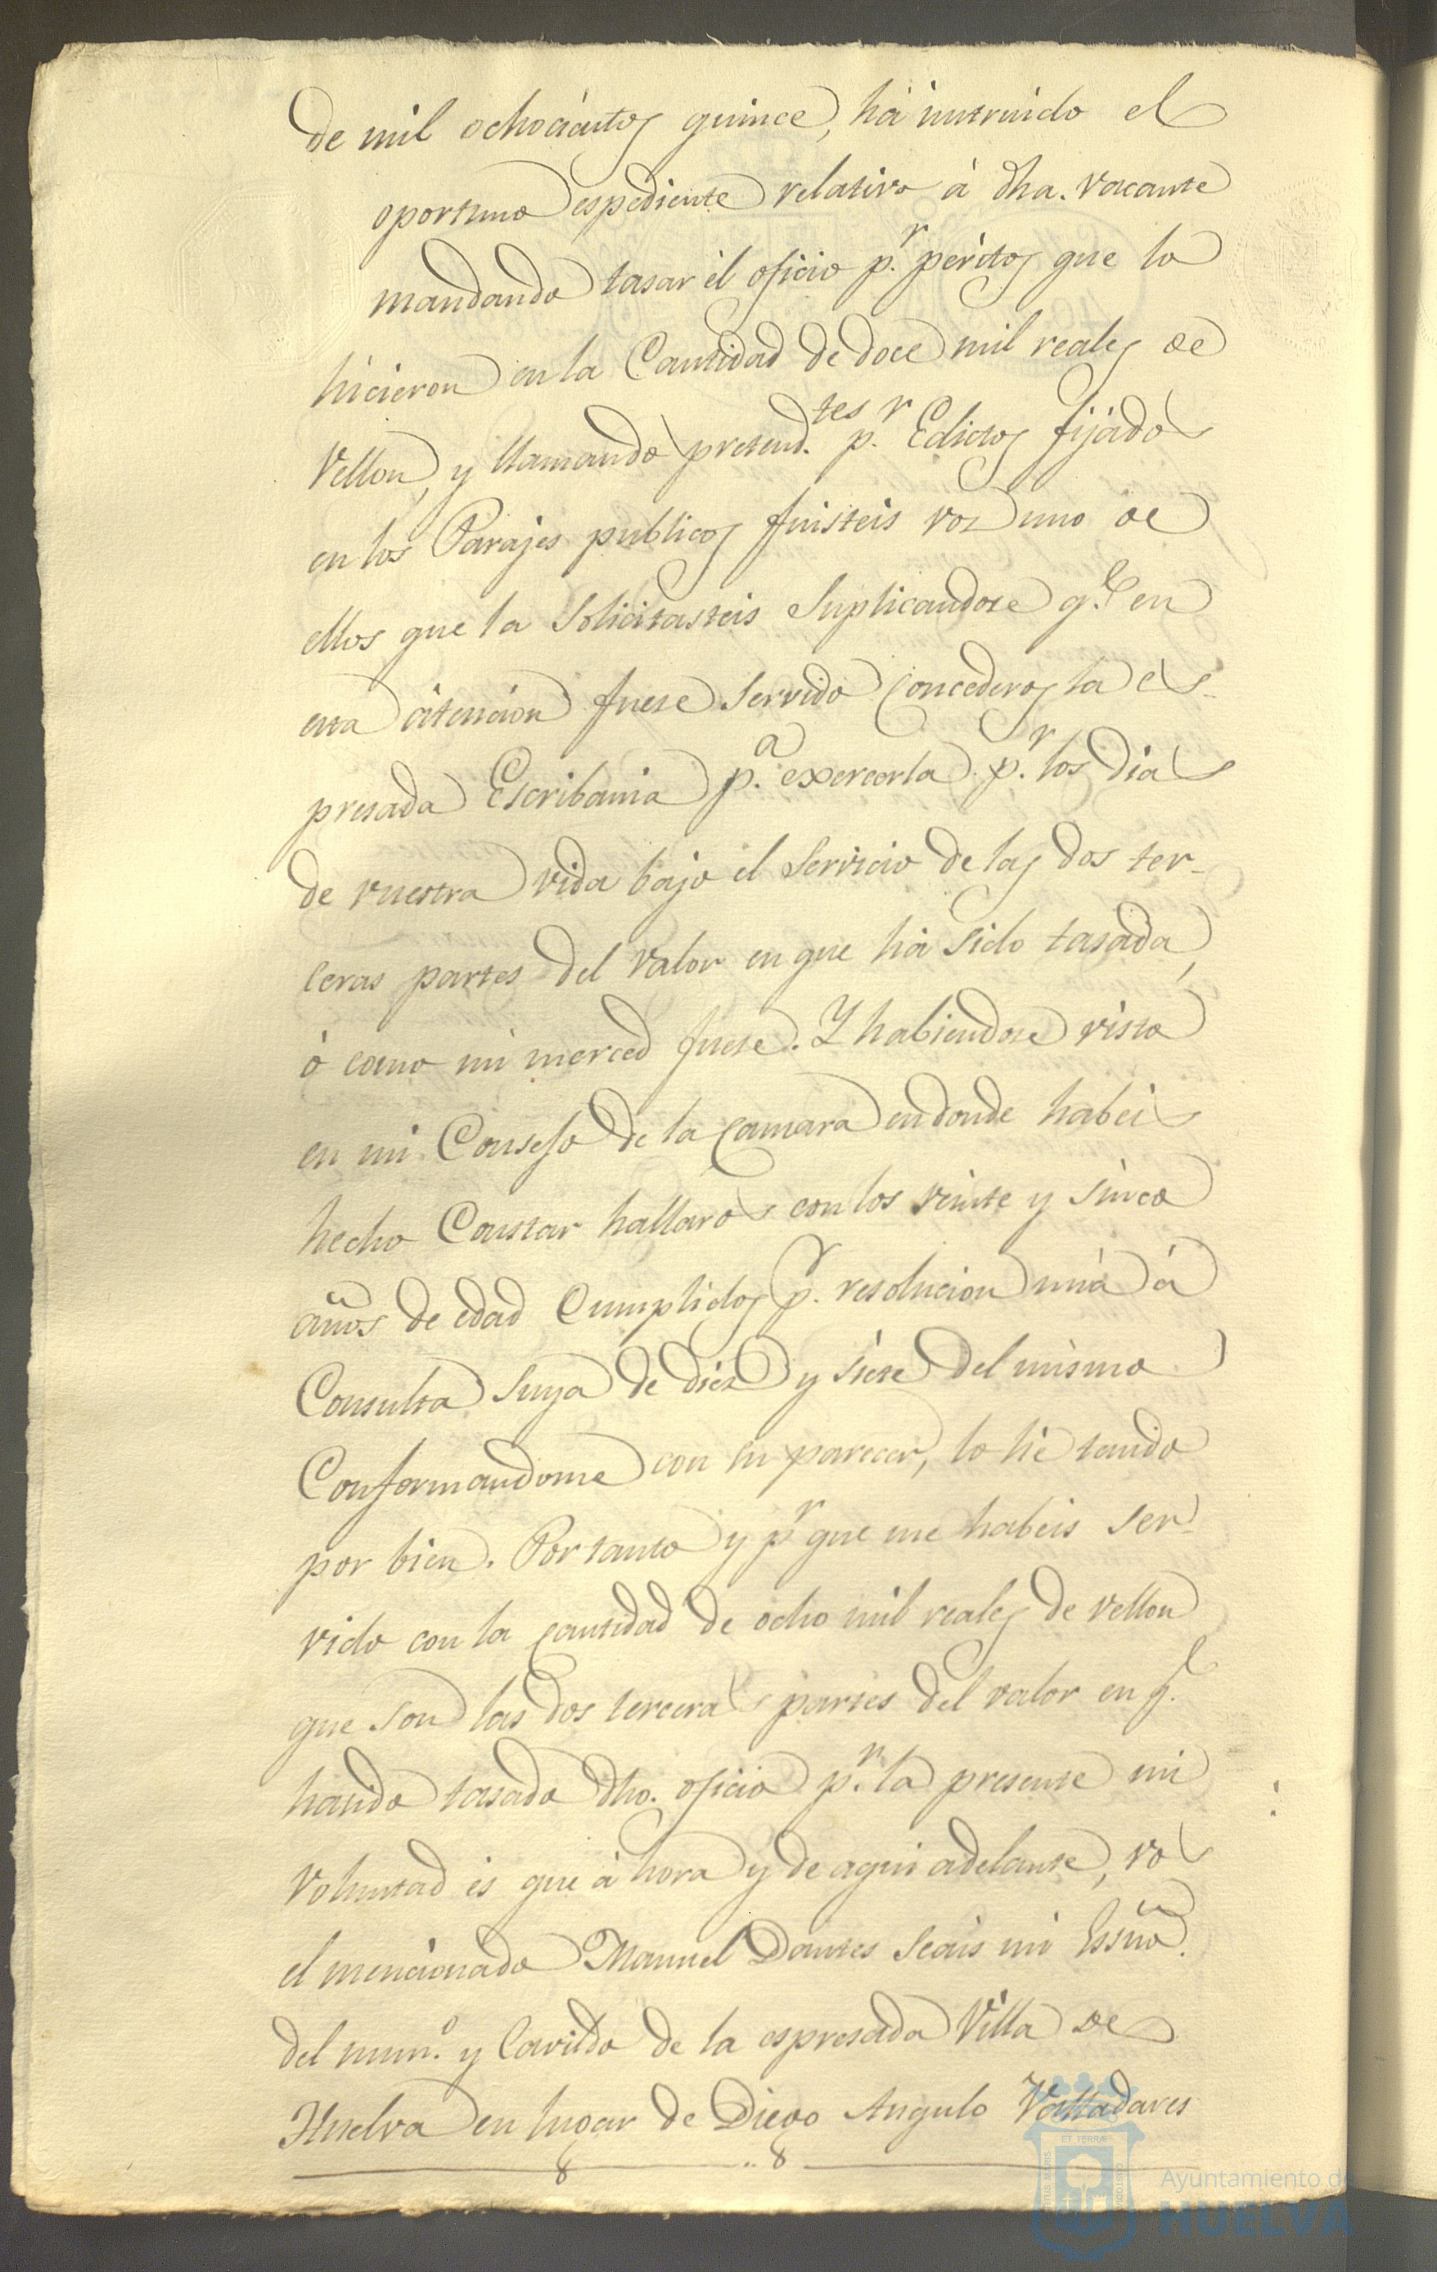 de mil ochociéntos quince, há instruido el
oportuno espediente relativo á dha. vacante
mandando tasar él oficio p.r peritos que lo
hicieron en la Cantidad de doce mil reales de
Vellon, y llamando pretend.tes p.r Edictos fijádos
en los Parajes publicos fuisteis vos uno de
ellos que la Solicitasteis Suplicandose q.e en
esta aténcion fuese Servido Concederos la es-
presada Escribania p.a exercerla p.r los dias
de vuestra vida bajo el Servicio de las dos ter-
ceras partes del valor en que há sido tasada,
ó como mi merced fuese. Y habiendose visto
en mi Consejo de la Camara en donde habeis
hecho Constar hallaros con los veinte y Sinco
años de edad Cumplidos p.r resolucion mia á
Consulta Suya de diez y siete del mismo
Conformandome con su parecer, lo hé tenido
por bien. Por tanto y p.r que me habeis Ser-
vido con la cantidad de ocho mil reales de vellon
que son las dos terceras partes del valor en q.e
han sido tasado dho. oficio p.r la presente mi
Voluntad és que á hora y de aqui adelante, vos
el mencionado Manuel Dantes Seáis mi Essño.
del num.o y Cavildo de la espresada Villa de
Huelva en lugar de Diego Angulo Valladares
ET TERRÆ
Ayuntamiento de
HUELVA